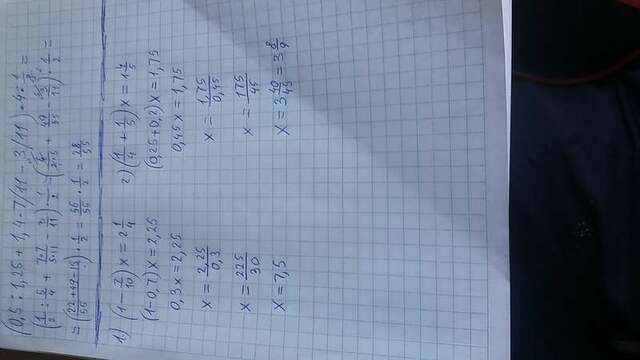 (0,5 : 1,25 + 1,4 · 7/11 − 3/11) · 4 · 1/8 =
(1/2 : 5/4 + 7·7/5·11 − 3/11) · 1/2 = (4/2·5 + 49/55 − 3/11) · 1/2 =
= (22+49−15/55) · 1/2 = 56/55 · 1/2 = 28/55
1) (1 − 7/10)x = 2 1/4
(1−0,7)x = 2,25
0,3x = 2,25
x = 2,25/0,3
x = 225/30
x = 7,5
2) (1/4 + 1/5)x = 1 4/5
(0,25+0,2)x = 1,75
0,45x = 1,75
x = 1,75/0,45
x = 175/45
x = 3 40/45 = 3 8/9